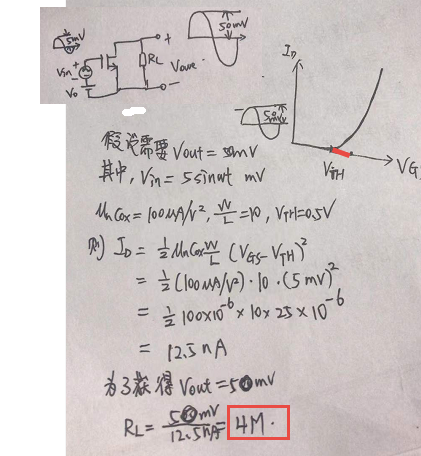 5mV
50mV
Vin
+
-
V₀
RL
+
Vout
-
ID
50mV
VTH
VG
假设需要 Vout = 50mV
其中, Vin = 5 sinωt mV
μnCox = 100μA/V², W/L = 10, VTH = 0.5V
则 ID = 1/2 μnCox W/L (VGS - VTH)²
= 1/2 (100μA/V²) · 10 · (5mV)²
= 1/2 100×10⁻⁶ × 10 × 25 × 10⁻⁶
= 12.5nA
为了获得 Vout = 50mV
RL = 50mV/12.5nA = 4M.